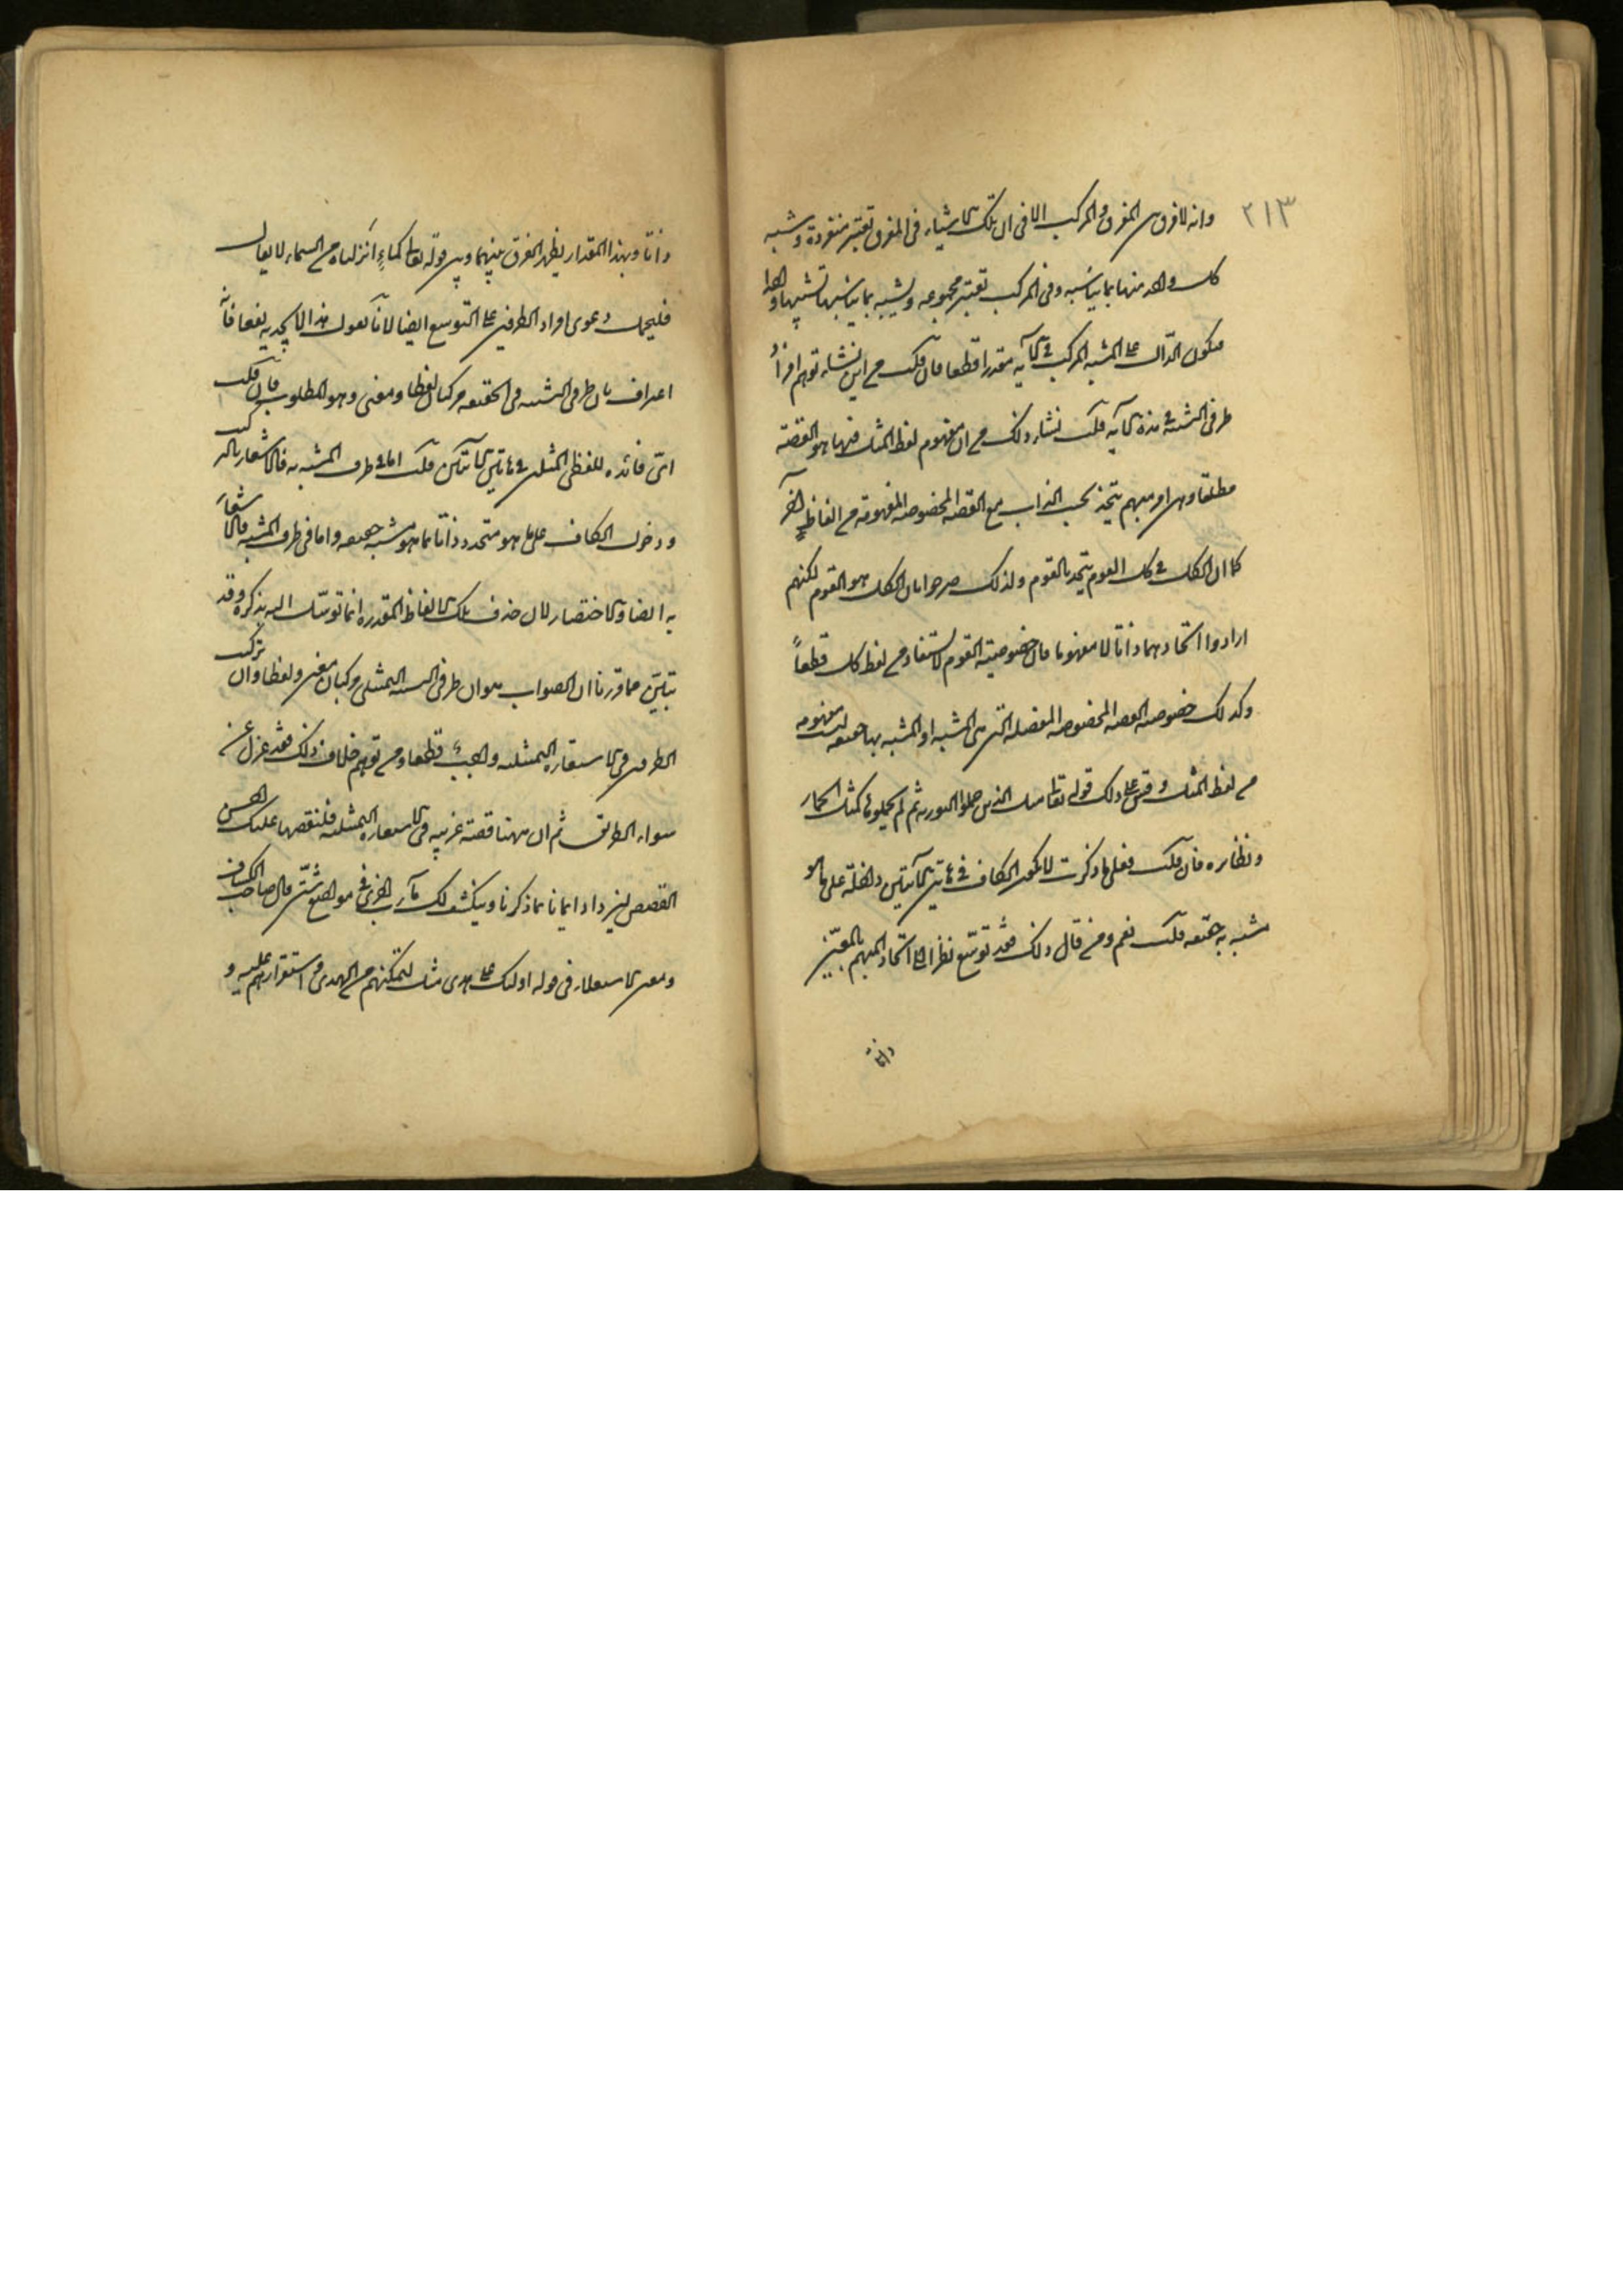 ٢١٣
وانه لا فرق بين المفرق والمركب الا في ان تلك الاشياء في المفرق تعتبر منفردة وشبه
كل واحد منها بما يناسبه وفي المركب تعتبر مجموعه ويشبه بما يناسبها تشبيها واحدا
فيكون الدّال على المشبه المركب في الآيه مقدرا قطعا فان قلت من اين نشاء توهم افراد
طرفي التشبيه في هذه الآيه قلت نشاء ذلك من ان مفهوم لفظ المثل فيها هو القصّة
مطلقا وهي امر مبهم يتحد بحسب الذات مع القصه المخصوصه المفهومة من الفاظٍ اُخَر
كما ان الكل في كل القوم يتحد بالقوم ولذلك صرحوا بان الكل هو القوم لكنهم
ارادوا اتحادهما ذاتا لا مفهوما فان خصوصيته القوم لا يستفاد من لفظ كل قطعاً
وكذلك خصوصه القصه المخصوصه المفصله التي هي المشبه او المشبه بها حقيقه ليست مفهومه
من لفظ المثل وقس على ذلك قوله تعالى مثل الذين حملوا التورىه ثم لم يحملوها كمثل الحمار
ونظائره فان قلت فعلى ما ذكرت لا يكون الكاف في هاتين الآيتين داخلة على ما هو
مشبه به حقيقه قلت نعم ومن قال ذلك فقد توسّع نظرا الى اتحاد المبهم بالمعيّن
ذاتا
ذاتا وبهذا المقدار يظهر الفرق بينهما وبين قوله تعالى كماءٍ انزلناه من السماء لا يقال
فليحمل دعوى افراد الطرفين على التوسع ايضا لانّا نقول هذا لا يجديه نفعا فانه
اعتراف بان طرفي التشبيه في الحقيقه مركبان لفظا ومعنى وهو المطلوب فان قلت
ايّ فائده للفظي المثل في هاتين الآيتين قلت اما في طرف المشبه به فالاشعار بالتركيب
ودخول الكاف على ما هو متحد ذاتا بما هو مشبه به حقيقه واما في طرف المشبه فالاشعار
به ايضا والاختصار لان حذف تلك الالفاظ المقدره انما توسّل اليه بذكره وقد
تبيّن مما قررنا ان الصواب هو ان طرفي التشبيه التمثيلي مركبان معنى ولفظا وان تركيب
الطرفين في الاستعاره التمثيليه واجب قطعا ومن توهم خلاف ذلك فقد عزل عن
سواء الطريق ثم ان ههنا قصة غريبه في الاستعاره التمثيليه فلنقصها عليك احسن
القصص ليزداد ايمانا بما ذكرنا وينكشف لك مآرب اخرى في مواضع شتّى قال صاحب الكشاف
ومعنى الاستعلاء في قوله اولئك على هدى مثل لتمكنهم من الهدى واستقرارهم عليه و